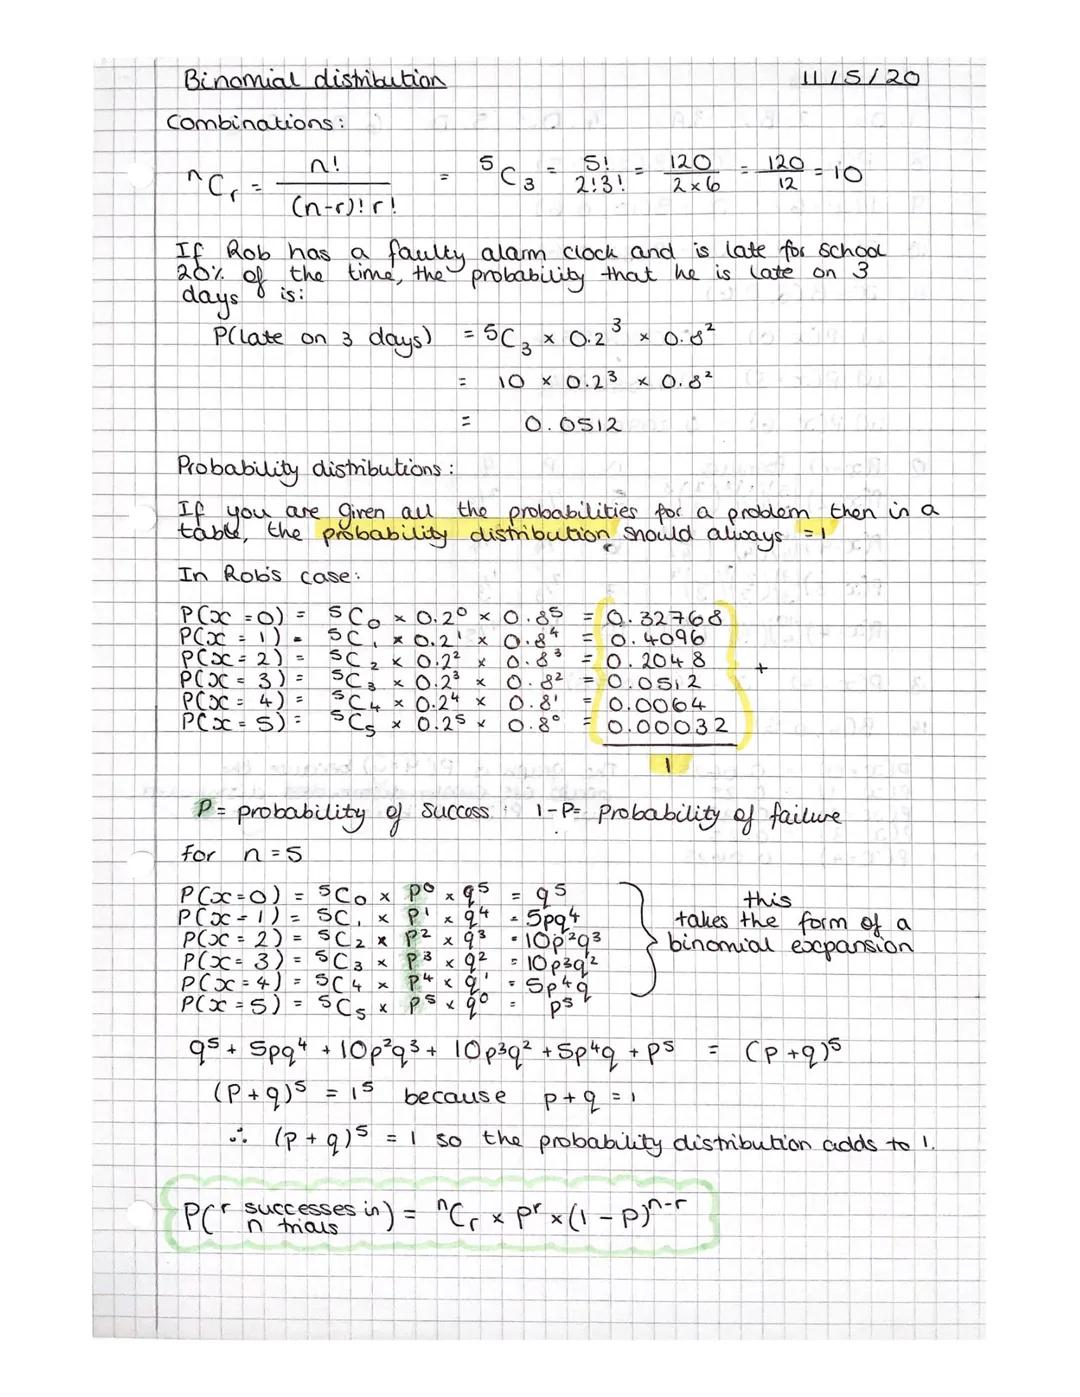 Binomial distribution 11/5/20
Combinations:
ⁿCᵣ = n!/(n-r)!r! = ⁵C₃ = 5!/2!3! = 120/2×6 = 120/12 = 10
If Rob has a faulty alarm clock and is late for school
20% of the time, the probability that he is late on 3
days is:
P(late on 3 days) = ⁵C₃ × 0.2³ × 0.8²
= 10 × 0.2³ × 0.8²
= 0.0512
Probability distributions:
If you are given all the probabilities for a problem then in a
table, the probability distribution should always = 1
In Rob's case:
P(x = 0) = ⁵C₀ × 0.2⁰ × 0.8⁵ = 0.32768
P(x = 1) = ⁵C₁ × 0.2¹ × 0.8⁴ = 0.4096
P(x = 2) = ⁵C₂ × 0.2² × 0.8³ = 0.2048 +
P(x = 3) = ⁵C₃ × 0.2³ × 0.8² = 0.0512
P(x = 4) = ⁵C₄ × 0.2⁴ × 0.8¹ = 0.0064
P(x = 5) = ⁵C₅ × 0.2⁵ × 0.8⁰ = 0.00032
1
P = probability of success 1-P = Probability of failure
for n = 5
P(x=0) = ⁵C₀ × p⁰ × q⁵ = q⁵
P(x=1) = ⁵C₁ × p¹ × q⁴ = 5pq⁴
P(x=2) = ⁵C₂ × p² × q³ = 10p²q³
P(x=3) = ⁵C₃ × p³ × q² = 10p³q²
P(x=4) = ⁵C₄ × p⁴ × q¹ = 5p⁴q
P(x=5) = ⁵C₅ × p⁵ × q⁰ = p⁵
this
takes the form of a
binomial expansion
q⁵ + 5pq⁴ + 10p²q³ + 10p³q² + 5p⁴q + p⁵ = (p+q)⁵
(p+q)⁵ = 1⁵ because p+q = 1
∴ (p+q)⁵ = 1 so the probability distribution adds to 1.
P(r successes in n trials) = ⁿCᵣ × pʳ × (1-p)ⁿ⁻ʳ